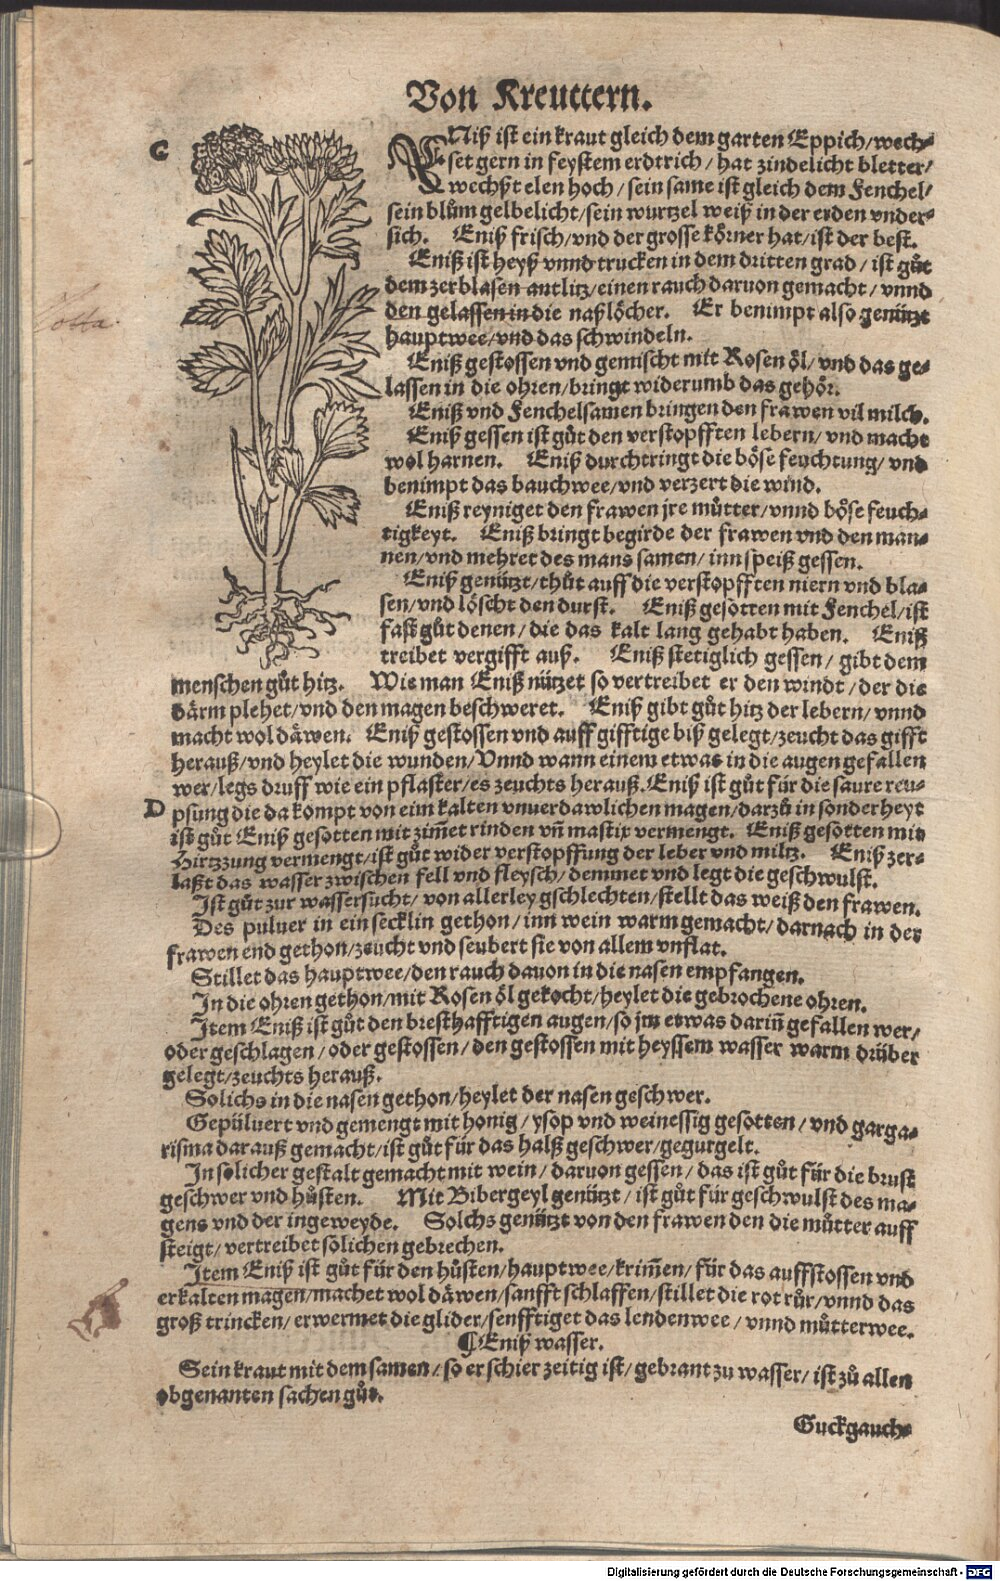 Von Kreuttern.
C
ENiß ist ein kraut gleich dem garten Eppich/wech⸗
set gern in feystem erdtrich/ hat zindelicht bletter/
wechßt elen hoch/ sein same ist gleich dem Fenchel/
sein blům gelbelicht/sein wurtzel weiß in der erden vnder⸗
sich. Eniß frisch/vnd der grosse körner hat/ist der best.
Eniß ist heyß vnnd trucken in dem dritten grad/ ist gůt
dem zerblasen antlitz/einen rauch daruon gemacht/ vnnd
den gelassen in die naßlöcher. Er benimpt also genützt
hauptwee/vnd das schwindeln.
Eniß gestossen vnd gemischt mit Rosen öl/ vnd das ge⸗
lassen in die ohren/bringt widerumb das gehör.
Eniß vnd Fenchelsamen bringen den frawen vil milch.
Eniß gessen ist gůt den verstopfften lebern/ vnd macht
wol harnen. Eniß durchtringt die böse feuchtung/ vnd
benimpt das bauchwee/vnd verzert die wind.
Eniß reyniget den frawen jre můtter/vnnd böse feuch⸗
tigkeyt. Eniß bringt begirde der frawen vnd den man⸗
nen/vnd mehret des mans samen/ inn speiß gessen.
Eniß genützt/thůt auff die verstopfften niern vnd bla⸗
sen/vnd löscht den durst. Eniß gesotten mit Fenchel/ist
fast gůt denen/ die das kalt lang gehabt haben. Eniß
treibet vergifft auß. Eniß stetiglich gessen/ gibt dem
menschen gůt hitz. Wie man Eniß nützet so vertreibet er den windt/der die
därm plehet/vnd den magen beschweret. Eniß gibt gůt hitz der lebern/ vnnd
macht wol däwen. Eniß gestossen vnd auff gifftige biß gelegt/zeucht das gifft
herauß/vnd heylet die wunden/Vnnd wann einem etwas in die augen gefallen
wer/legs druff wie ein pflaster/es zeuchts herauß. Eniß ist gůt für die saure reu⸗
D psung die da kompt von eim kalten vnuerdawlichen magen/darzů in sonderheyt
ist gůt Eniß gesotten mit zim̃et rinden vñ mastix vermengt. Eniß gesotten mit
Hirtzzung vermengt/ist gůt wider verstopffung der leber vnd miltz. Eniß zer⸗
laßt das wasser zwischen fell vnd fleysch/ demmet vnd legt die geschwulst.
Ist gůt zur wassersucht/ von allerley gschlechten/stellt das weiß den frawen.
Des puluer in ein secklin gethon/ inn wein warm gemacht/ darnach in der
frawen end gethon/zeucht vnd seubert sie von allem vnflat.
Stillet das hauptwee/den rauch dauon in die nasen empfangen.
In die ohren gethon/mit Rosen öl gekocht/heylet die gebrochene ohren.
Item Eniß ist gůt den bresthafftigen augen/so jm etwas dariñ gefallen wer/
oder geschlagen/ oder gestossen/ den gestossen mit heyssem wasser warm drüber
gelegt/zeuchts herauß.
Solichs in die nasen gethon/heylet der nasen geschwer.
Gepüluert vnd gemengt mit honig/ ysop vnd weinessig gesotten/ vnd garga⸗
risma darauß gemacht/ist gůt für das halß geschwer/gegurgelt.
In solicher gestalt gemacht mit wein/ daruon gessen/ das ist gůt für die brust
geschwer vnd hůsten. Mit Bibergeyl genützt/ ist gůt für geschwulst des ma⸗
gens vnd der ingeweyde. Solchs genützt von den frawen den die můtter auff
steigt/ vertreibet solichen gebrechen.
Item Eniß ist gůt für den hůsten/hauptwee/krim̃en/ für das auffstossen vnd
erkalten magen/machet wol däwen/sanfft schlaffen/stillet die rot růr/vnnd das
groß trincken/ erwermet die glider/senfftiget das lendenwee/ vnnd můtterwee.
¶Eniß wasser.
Sein kraut mit dem samen/ so er schier zeitig ist/ gebrant zu wasser/ ist zů allen
obgenanten sachen gůt.
Guckgauch⸗
Digitalisierung gefördert durch die Deutsche Forschungsgemeinschaft - DFG